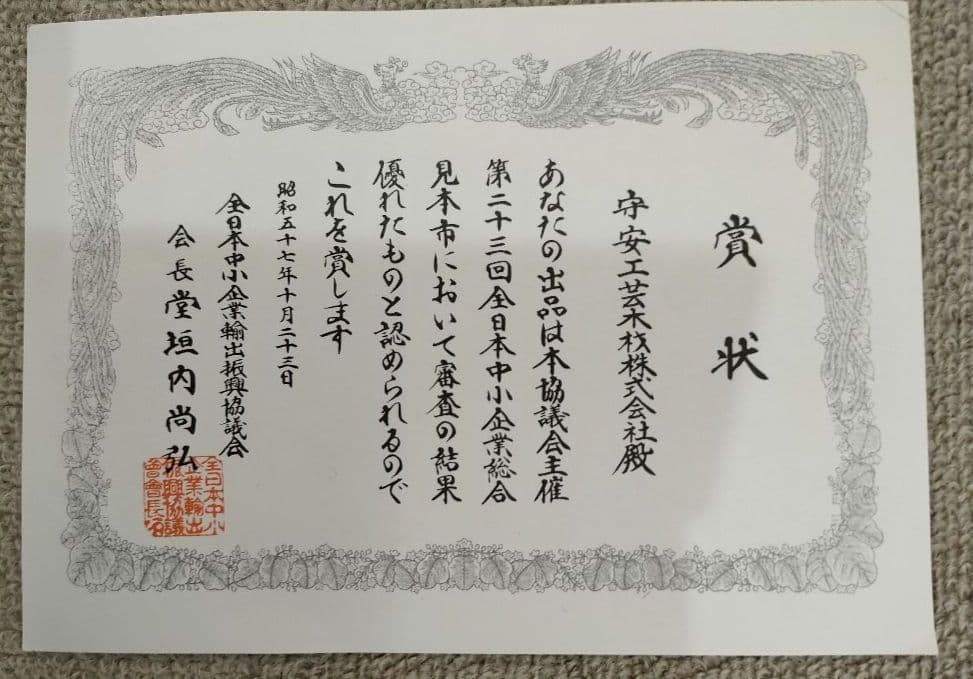 賞状
守安工芸木材株式会社殿
あなたの出品は本協議会主催
第二十三回全日本中小企業総合
見本市において審査の結果
優れたものと認められるので
これを賞します
昭和五十七年十月二十三日
全日本中小企業輸出振興協議会
会長堂垣内尚弘
全日本中小
企業輸出
振興協議
會會長